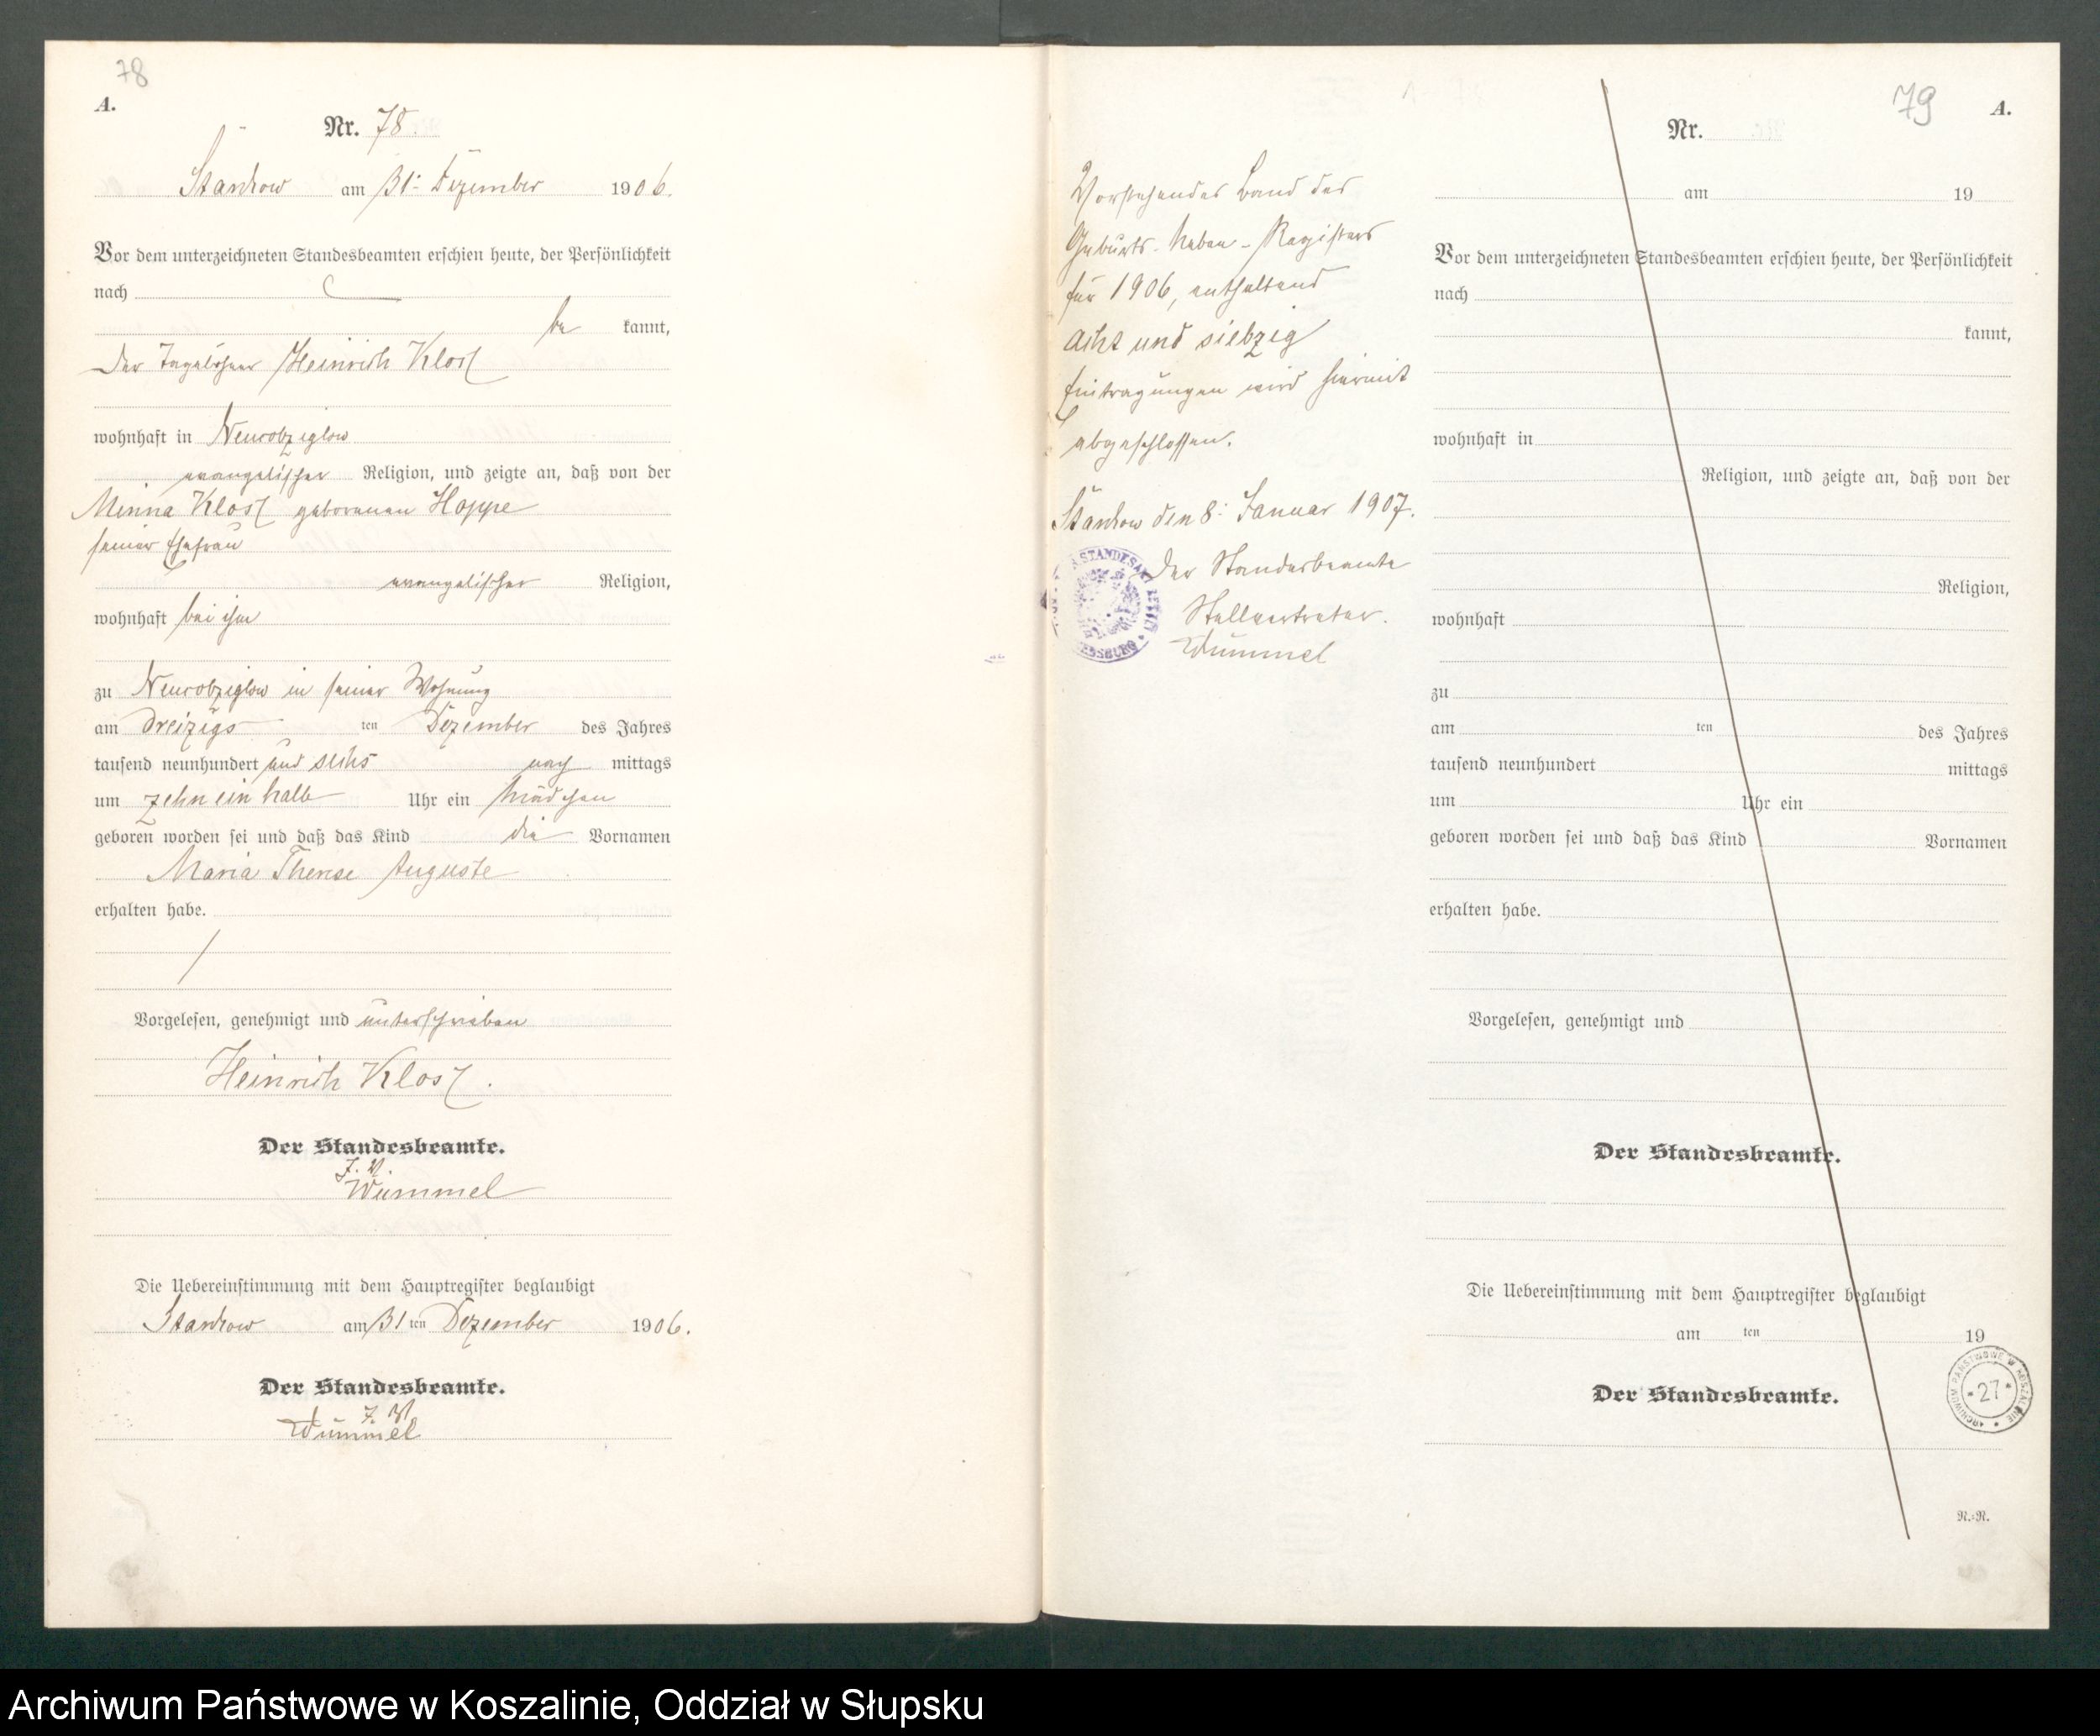 78
A.
Nr. 78.
Stantow am 31. Dezember 1906.
Vor dem unterzeichneten Standesbeamten erschien heute, der Persönlichkeit
nach
be kannt,
der Tagelöhner Heinrich Klost
wohnhaft in Neurobziglow
evangelischer Religion, und zeigte an, daß von der
Minna Klost geborenen Hoppe
seiner Ehefrau
evangelischer Religion,
wohnhaft bei ihm
zu Neurobziglow in seiner Wohnung
am dreizigs ten Dezember des Jahres
tausend neunhundert und sechs nach mittags
um zehn ein halb Uhr ein Mädchen
geboren worden sei und daß das Kind die Vornamen
Maria Therese Auguste
erhalten habe.
Vorgelesen, genehmigt und unterschrieben
Heinrich Klost.
Der Standesbeamte.
J. V.
Wummel
Die Uebereinstimmung mit dem Hauptregister beglaubigt
Stantow am 31 ten Dezember 1906.
Der Standesbeamte.
J. V.
Wummel
Vorstehendes Band des
Geburts-Neben-Registers
für 1906, enthaltend
acht und siebzig
Eintragungen wird hiermit
abgeschlossen.
Stantow den 8. Januar 1907.
Der Standesbeamte
Stellvertreter.
Wummel
STANDESAMT
79
A.
Nr.
am 19
Vor dem unterzeichneten Standesbeamten erschien heute, der Persönlichkeit
nach
kannt,
wohnhaft in
Religion, und zeigte an, daß von der
Religion,
wohnhaft
zu
am ten des Jahres
tausend neunhundert mittags
um Uhr ein
geboren worden sei und daß das Kind Vornamen
erhalten habe.
Vorgelesen, genehmigt und
Der Standesbeamte.
Die Uebereinstimmung mit dem Hauptregister beglaubigt
am ten 19
Der Standesbeamte.
ARCHIWUM PAŃSTWOWE W KOSZALINIE
* 27 *
N.-R.
Archiwum Państwowe w Koszalinie, Oddział w Słupsku